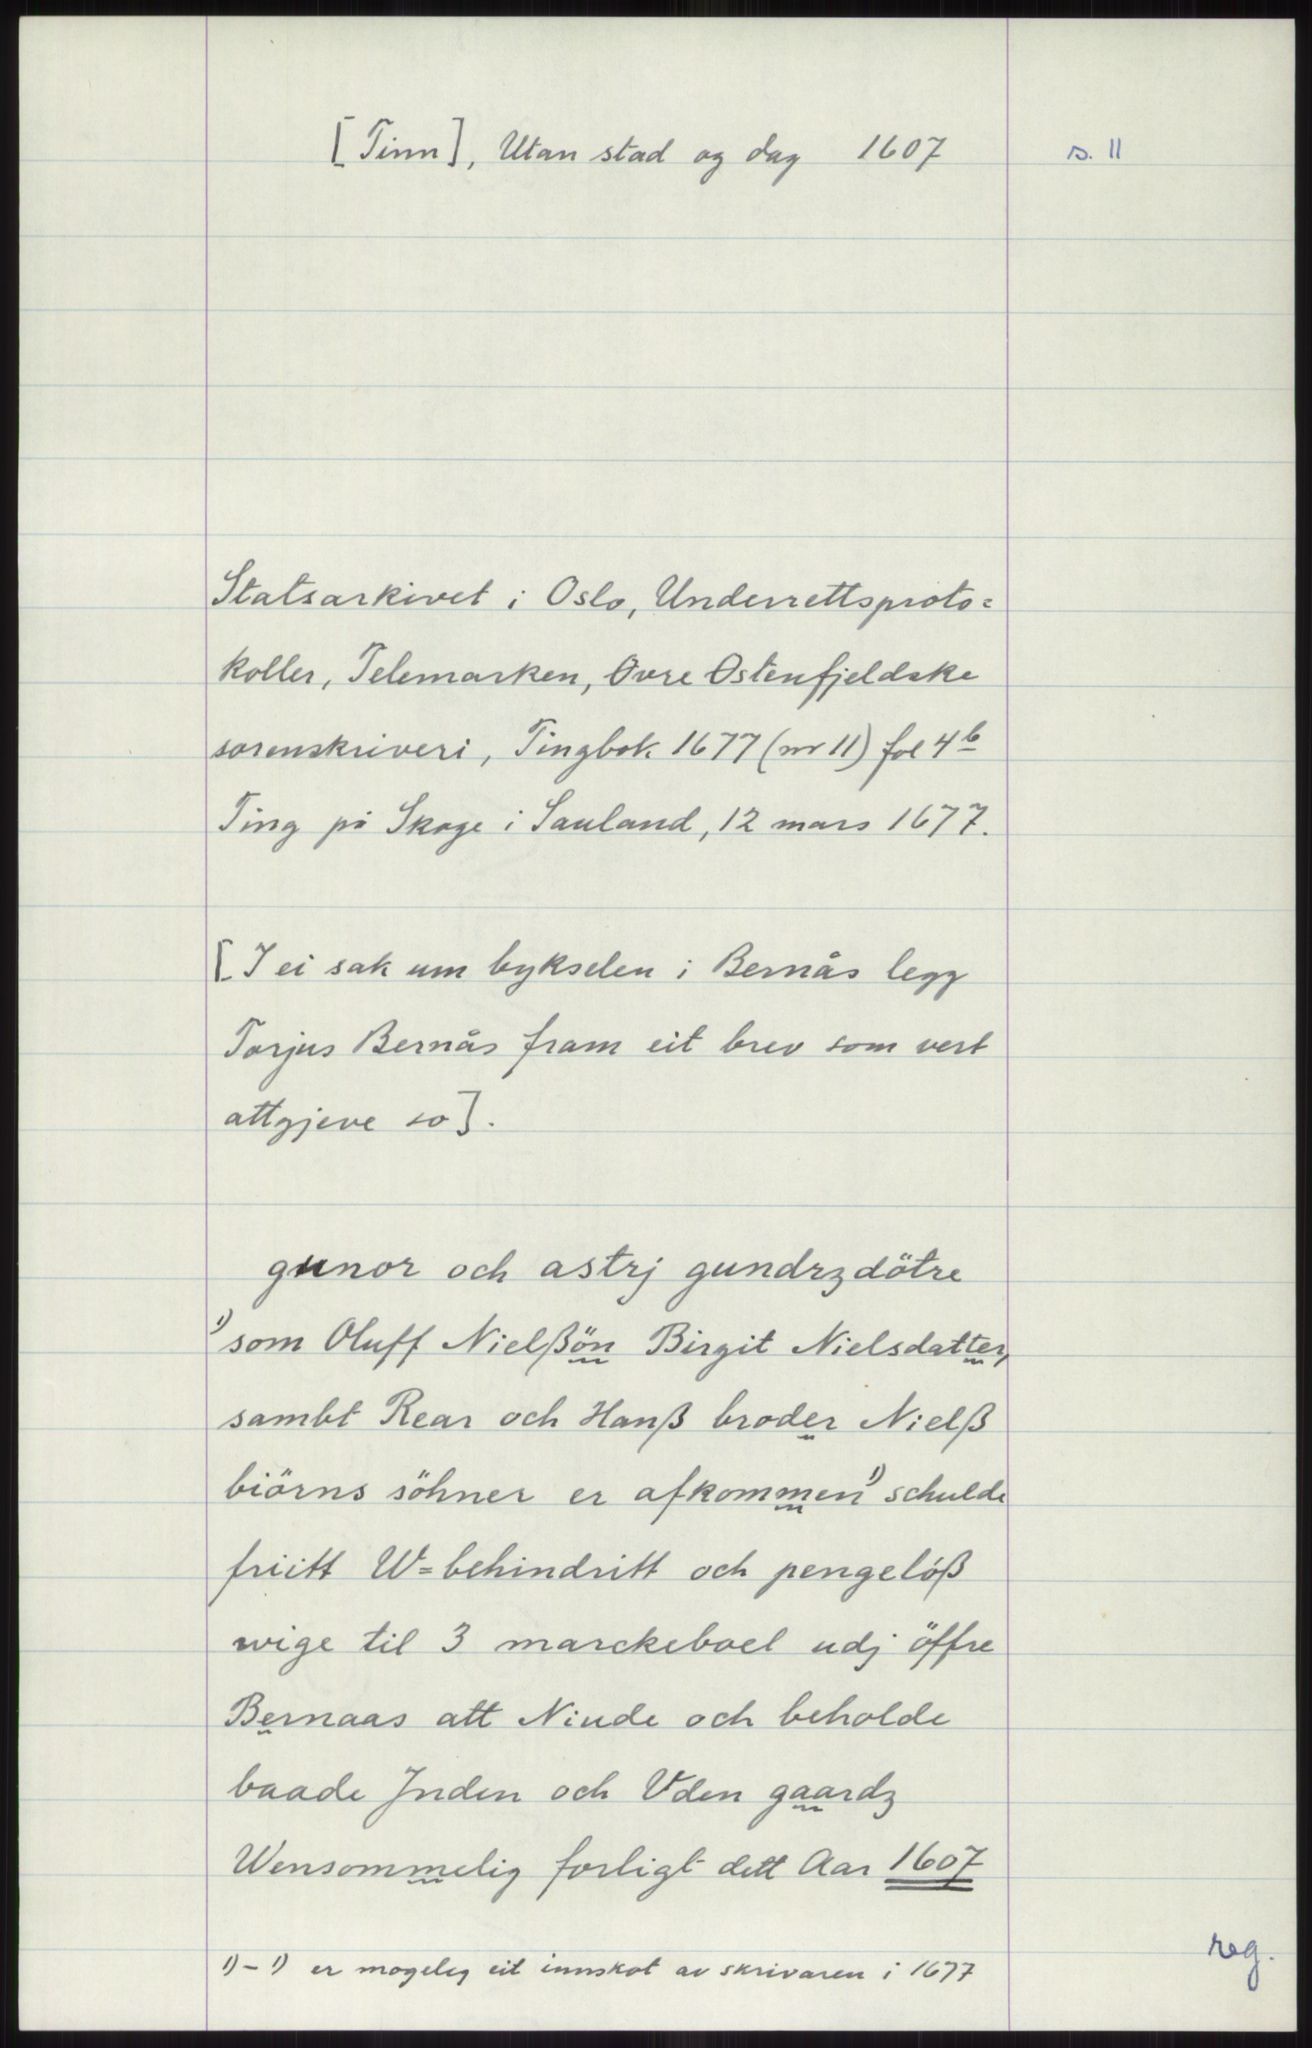 [Tinn], Utan stad og dag 1607
s. 11
Statsarkivet i Oslo, Underrettsproto=
koller, Telemarken, Øvre Østenfjeldske
sorenskriveri, Tingbok 1677 (nr 11) fol 4b
Ting på Skoge i Sauland, 12 mars 1677.
[I ei sak um bykselen i Bernås legg
Torjus Bernås fram eit brev som vert
attgjeve so].
gunor och astrj gundrzdötre
1) som Oluff Nielßön Birgit Nielsdatter,
sambt Rear och Hanß broder Nielß
biörns söhner er afkommen 1) schulde
friitt W=behindritt och pengelöß
wige til 3 marckeboel udj öffre
Bernaas att Niude och beholde
baade Jnden och Vden gaardz
Wensommelig forligt dett Aar 1607
1) – 1) er mogeleg eit innskot av skrivaren i 1677
reg.